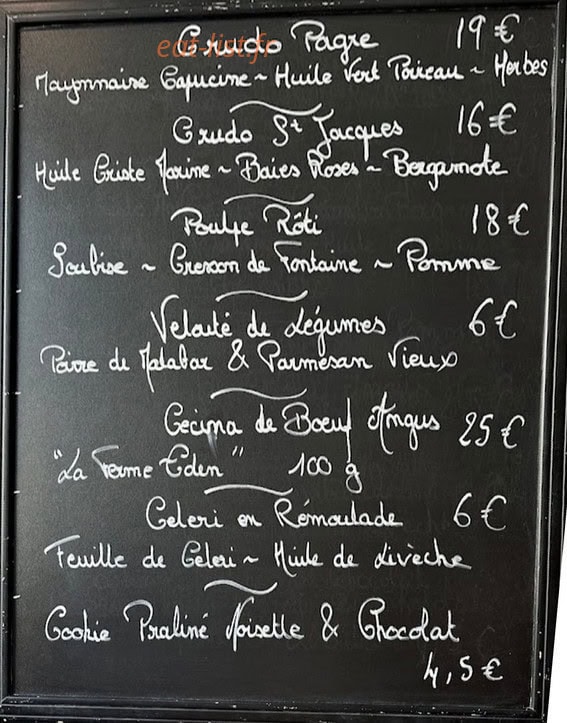 Crudo Pagre 19 €
eat-list.fr
Mayonnaise Capucine ~ Huile Vert Poireau ~ Herbes
Crudo St Jacques 16 €
Huile Criste Marine ~ Baies Roses ~ Bergamote
Poulpe Rôti 18 €
Soubise ~ Cresson de Fontaine ~ Pomme
Velouté de Légumes 6 €
Poivre de Malabar & Parmesan Vieux
Cecina de Boeuf Angus 25 €
"La Ferme Eden" 100 g
Celeri en Rémoulade 6 €
Feuille de Celeri ~ Huile de Livèche
Cookie Praliné Noisette & Chocolat
4,5 €